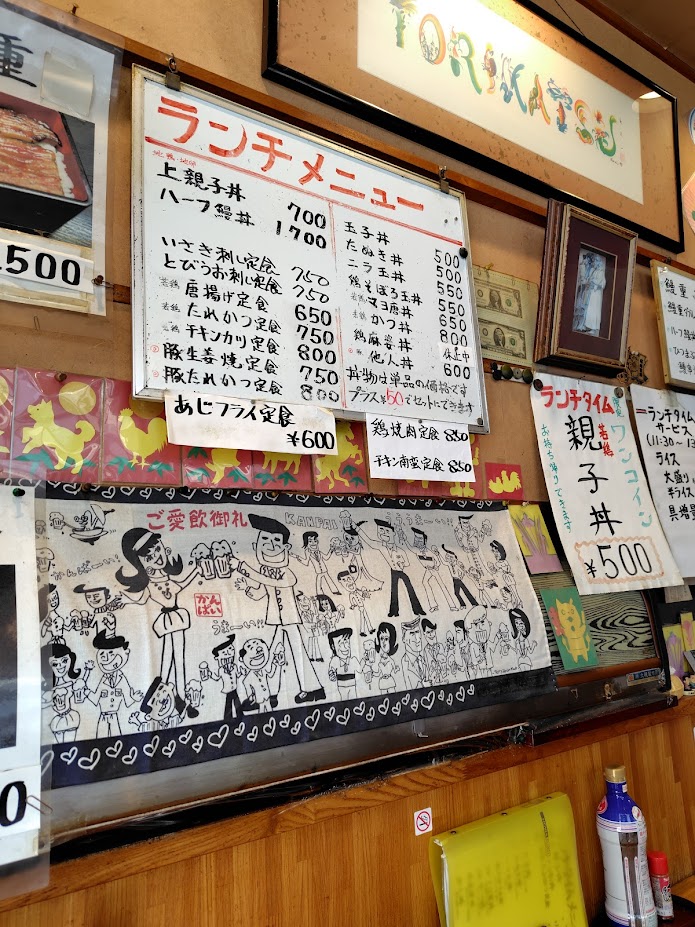 重
1500
TORIKATSU
ランチメニュー
上親子丼 700
ハーフ鰻丼 1700
いさき刺し定食 750
とびうお刺し定食 750
若鶏 唐揚げ定食 650
若鶏 たれかつ定食 750
若鶏 チキンカツ定食 800
豚生姜焼定食 750
豚たれかつ定食 800
玉子丼 500
たぬき丼 500
ニラ玉丼 550
鶏そぼろ玉丼 550
マヨ唐丼 650
かつ丼 800
鶏麻婆丼 休止中
他人丼 600
丼物は単品の価格です
プラス¥50でセットにできます
あじフライ定食
¥600
鶏焼肉定食 850
チキン南蛮定食 850
ランチタイム
ワンコイン
若鶏
親子丼
お持ち帰りできます
¥500
ランチタイム
サービス
ライス
大盛り
半ライス
具増量
ご愛飲御礼
KANPAI
かんぱい